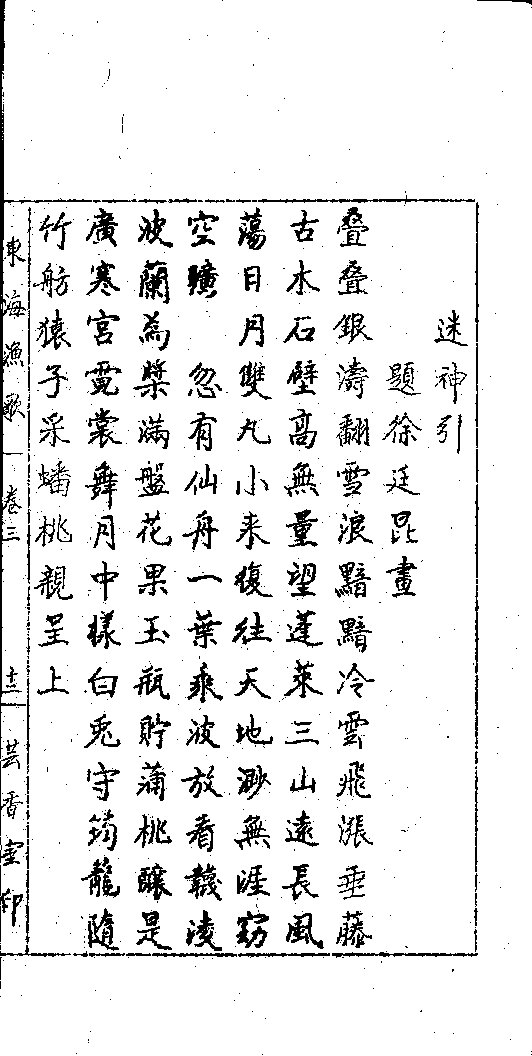 迷神引
題徐廷昆畫
叠叠銀濤翻雪浪黯黯冷雲飛漲垂藤
古木石壁高無量望蓬萊三山遠長風
蕩日月雙丸小来復往天地渺無涯窈
空曠　忽有仙舟一葉乘波放看襪淩
波蘭為槳滿盤花果玉瓶貯蒲桃釀是
廣寒宮霓裳舞月中樣白兎守筠籠隨
竹舫猿子采蟠桃親呈上
東海漁歌　卷三　十三　芸香室印